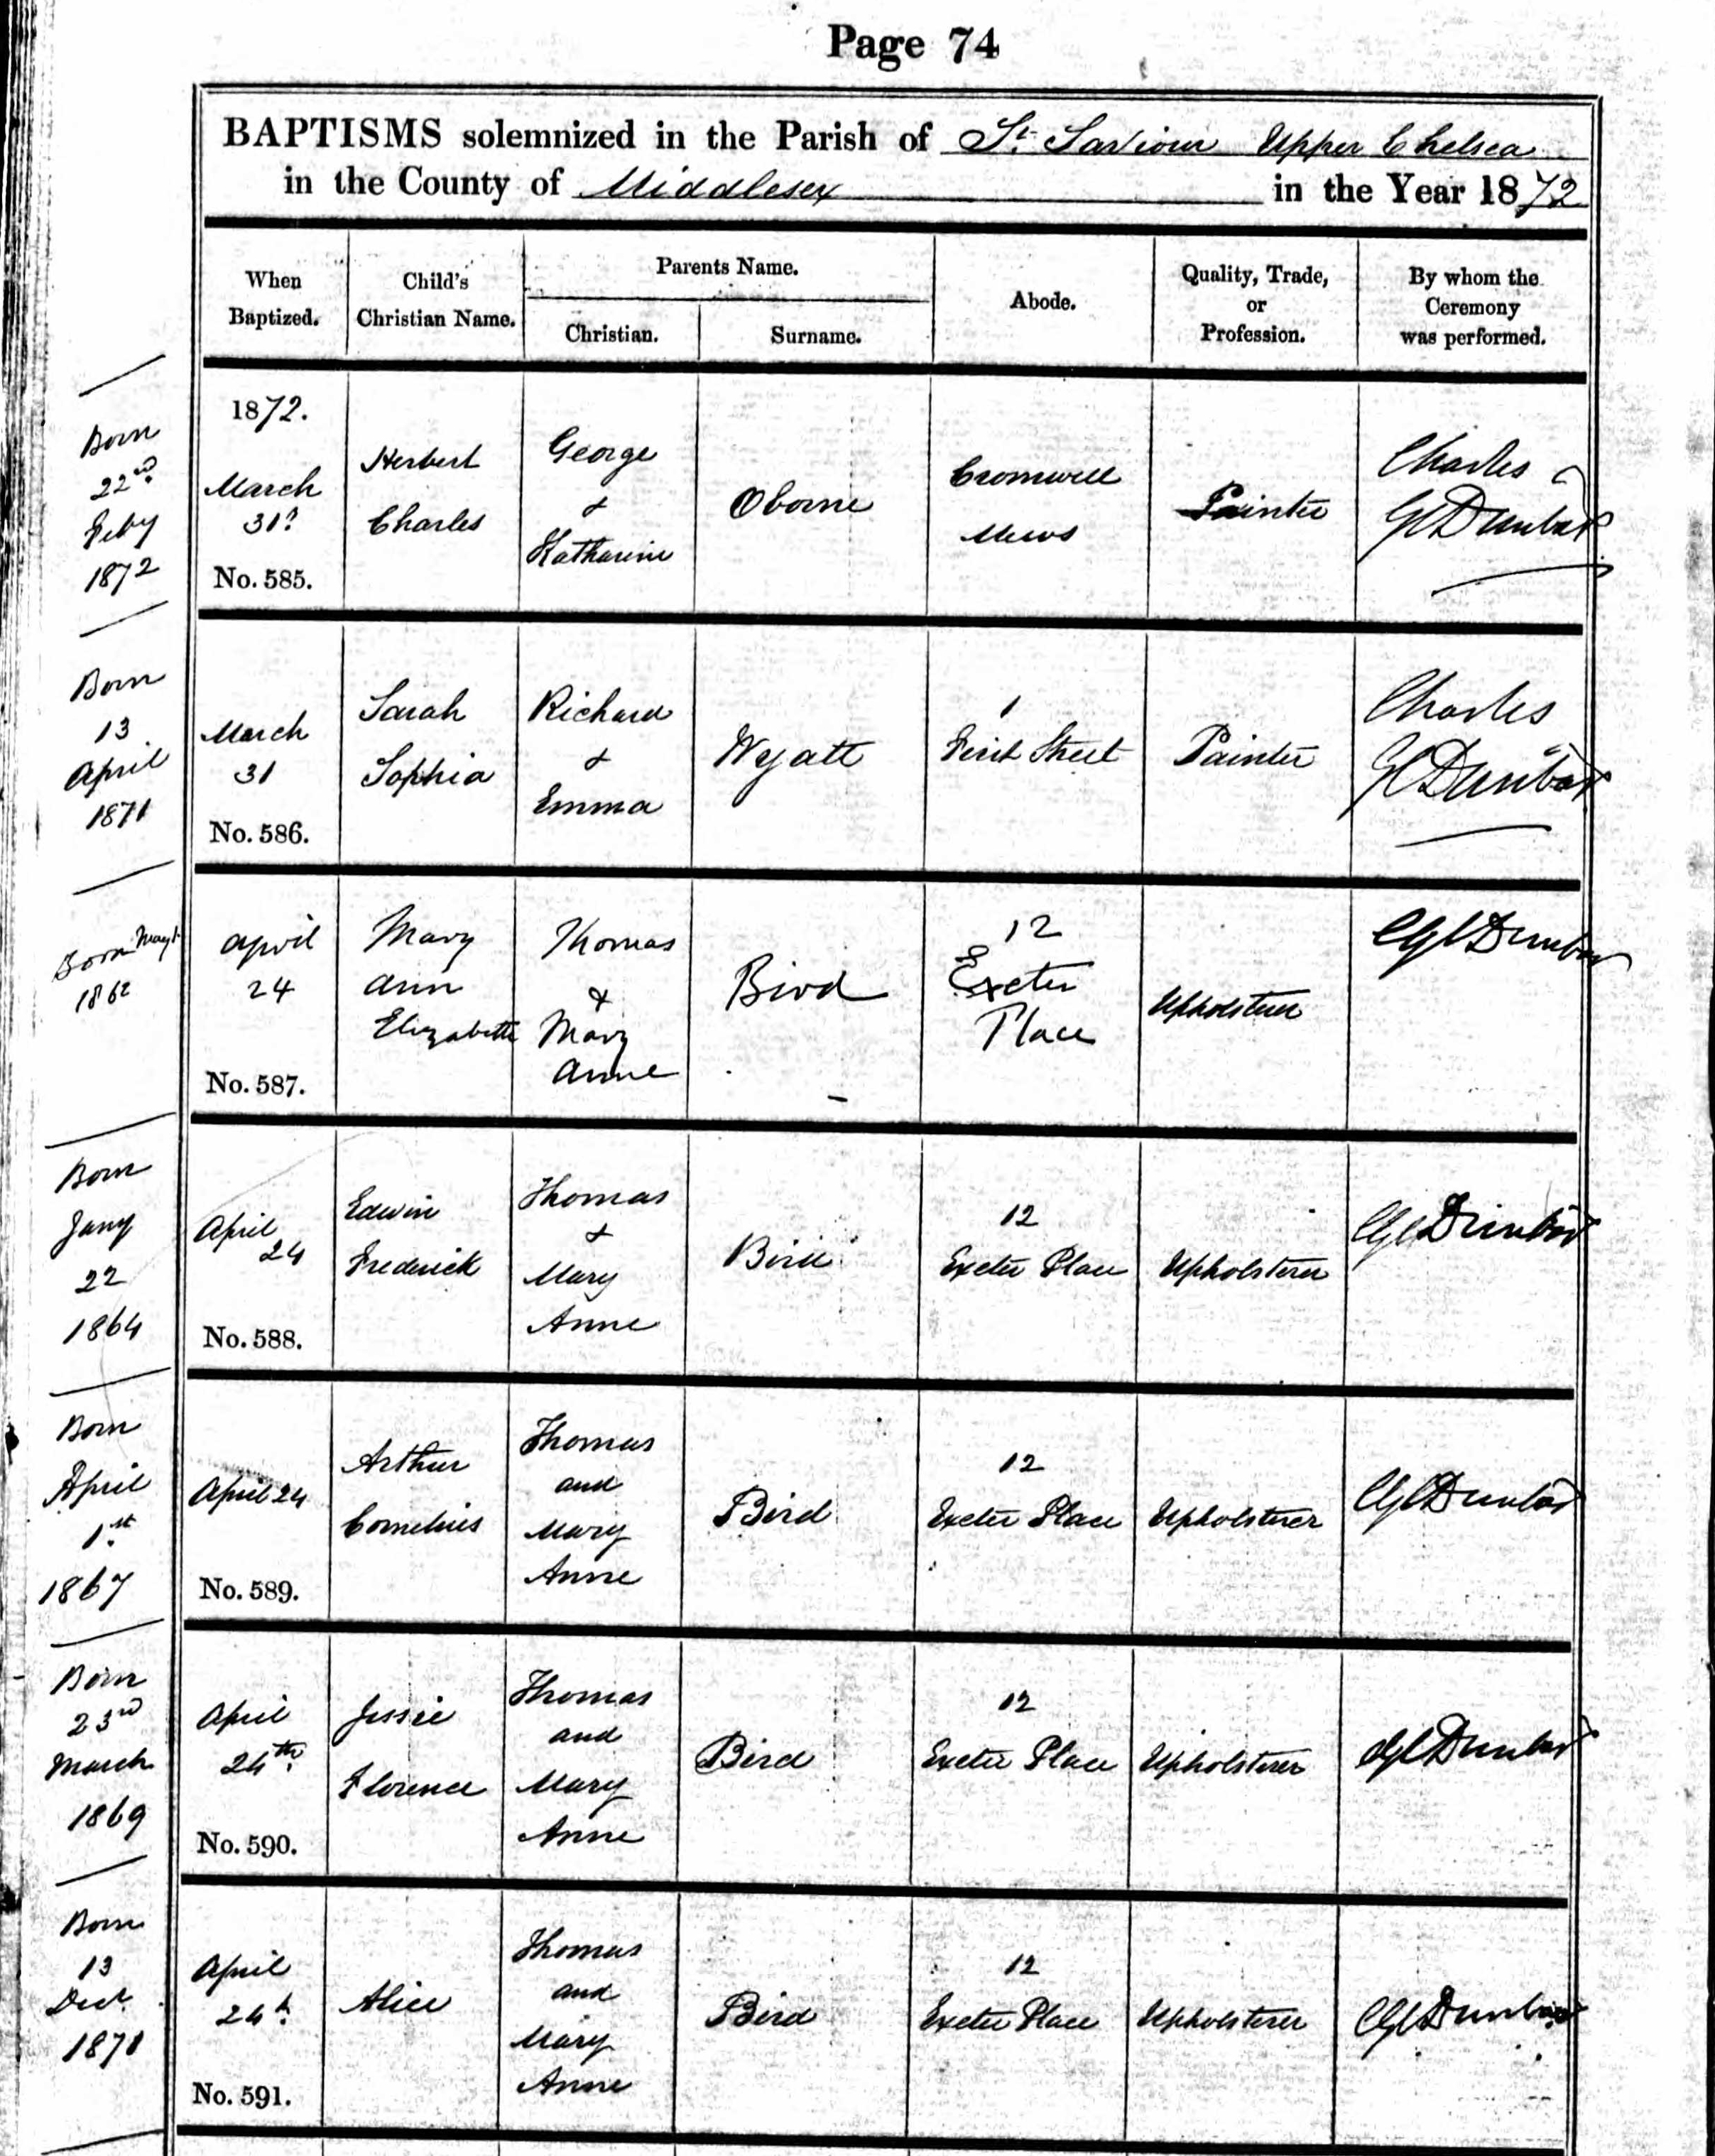 Page 74
BAPTISMS solemnized in the Parish of St. Saviour Upper Chelsea
in the County of Middlesex in the Year 1872
When
Baptized.
Child's
Christian Name.
Parents Name.
Christian.
Surname.
Abode.
Quality, Trade,
or
Profession.
By whom the
Ceremony
was performed.
Born
22nd
Feby
1872
1872.
March
31
No. 585.
Herbert
Charles
George
&
Katharine
Oborne
Cromwell
Mews
Painter
Charles
Dunbar
Born
13
April
1871
March
31
No. 586.
Sarah
Sophia
Richard
&
Emma
Wyatt
1
First Street
Painter
Charles
Dunbar
Born May 1
1862
April
24
No. 587.
Mary
Ann
Elizabeth
Thomas
&
Mary
Anne
Bird
12
Exeter
Place
Upholsterer
Dunbar
Born
Jany
22
1864
April
24
No. 588.
Edwin
Frederick
Thomas
&
Mary
Anne
Bird
12
Exeter Place
Upholsterer
Dunbar
Born
April
1st
1867
April 24
No. 589.
Arthur
Cornelius
Thomas
and
Mary
Anne
Bird
12
Exeter Place
Upholsterer
Dunbar
Born
23rd
March
1869
April
24th
No. 590.
Jessie
Florence
Thomas
and
Mary
Anne
Bird
12
Exeter Place
Upholsterer
Dunbar
Born
13
Dect.
1871
April
24th
No. 591.
Alice
Thomas
and
Mary
Anne
Bird
12
Exeter Place
Upholsterer
Dunbar